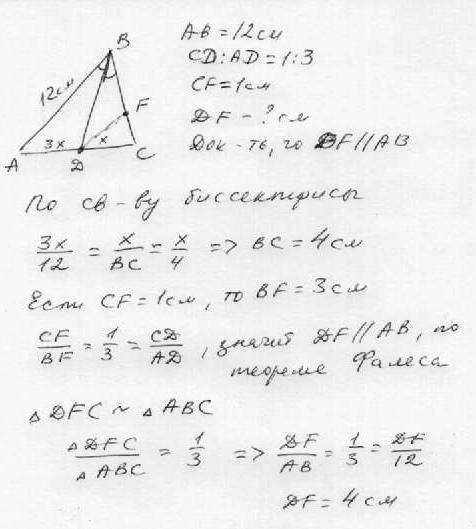 AB = 12см
CD : AD = 1:3
CF = 1см
DF - ? см
Док-ть, что DF // AB
B
12см
F
3x
x
A
D
C
По св-ву биссектрисы
3x/12 = x/BC = x/4 => BC = 4см
Если CF = 1см, то BF = 3см
CF/BF = 1/3 = CD/AD, значит DF // AB, по
теореме Фалеса
△ DFC ~ △ ABC
△ DFC / △ ABC = 1/3 => DF/AB = 1/3 = DF/12
DF = 4см